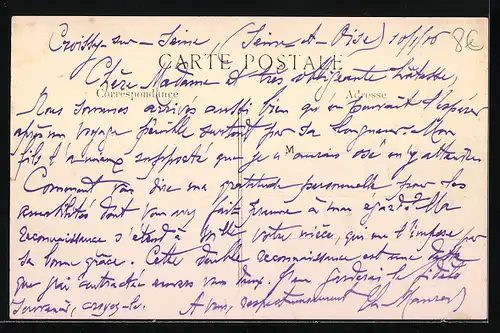 Croissy-sur-Seine, (Seine-et-Oise) 10/1/06
8€
CARTE POSTALE
Chère Madame et très obligeante hôtesse,
Correspondance Adresse
Nous sommes arrivés aussi bien qu'on pouvait l'espérer
après un voyage pénible surtout par sa longueur. Mon
M
fils l'a mieux supporté que je n'aurais osé m'y attendre.
Comment vous dire ma gratitude personnelle pour les
amabilités dont vous avez fait preuve à mon égard? Ma
reconnaissance s'étend à votre nièce, qui me l'impose par
sa bonne grâce. Cette double reconnaissance est une dette
que j'ai contractée envers vous deux. J'en garderai le fidèle
souvenir, croyez-le. A vous, respectueusement